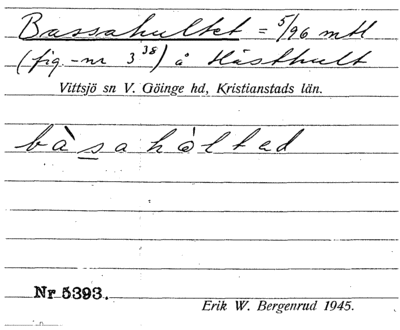 Bassahultet = 5/96 mtl
(fig.-nr 3³⁸) å Hästhult
Vittsjö sn V. Göinge hd, Kristianstads län.
bàsahòltad
Nr 5393.
Erik W. Bergenrud 1945.